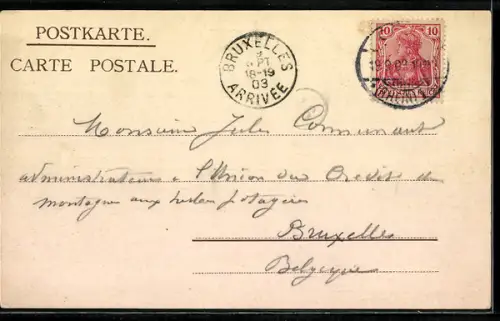 POSTKARTE.
CARTE POSTALE.
BRUXELLES
SEPT
18-19
03
ARRIVÉE
10 10
Monsieur Jules
administrateur à l'Union du Credit de
montagne aux herbes potagères
Bruxelles
Belgique